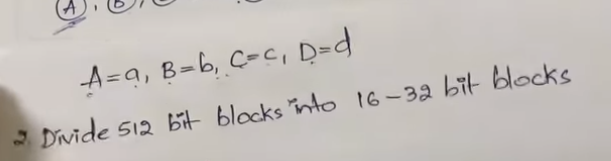 A, B,
A=a, B=b, C=c, D=d
2. Divide 512 bit blocks into 16-32 bit blocks